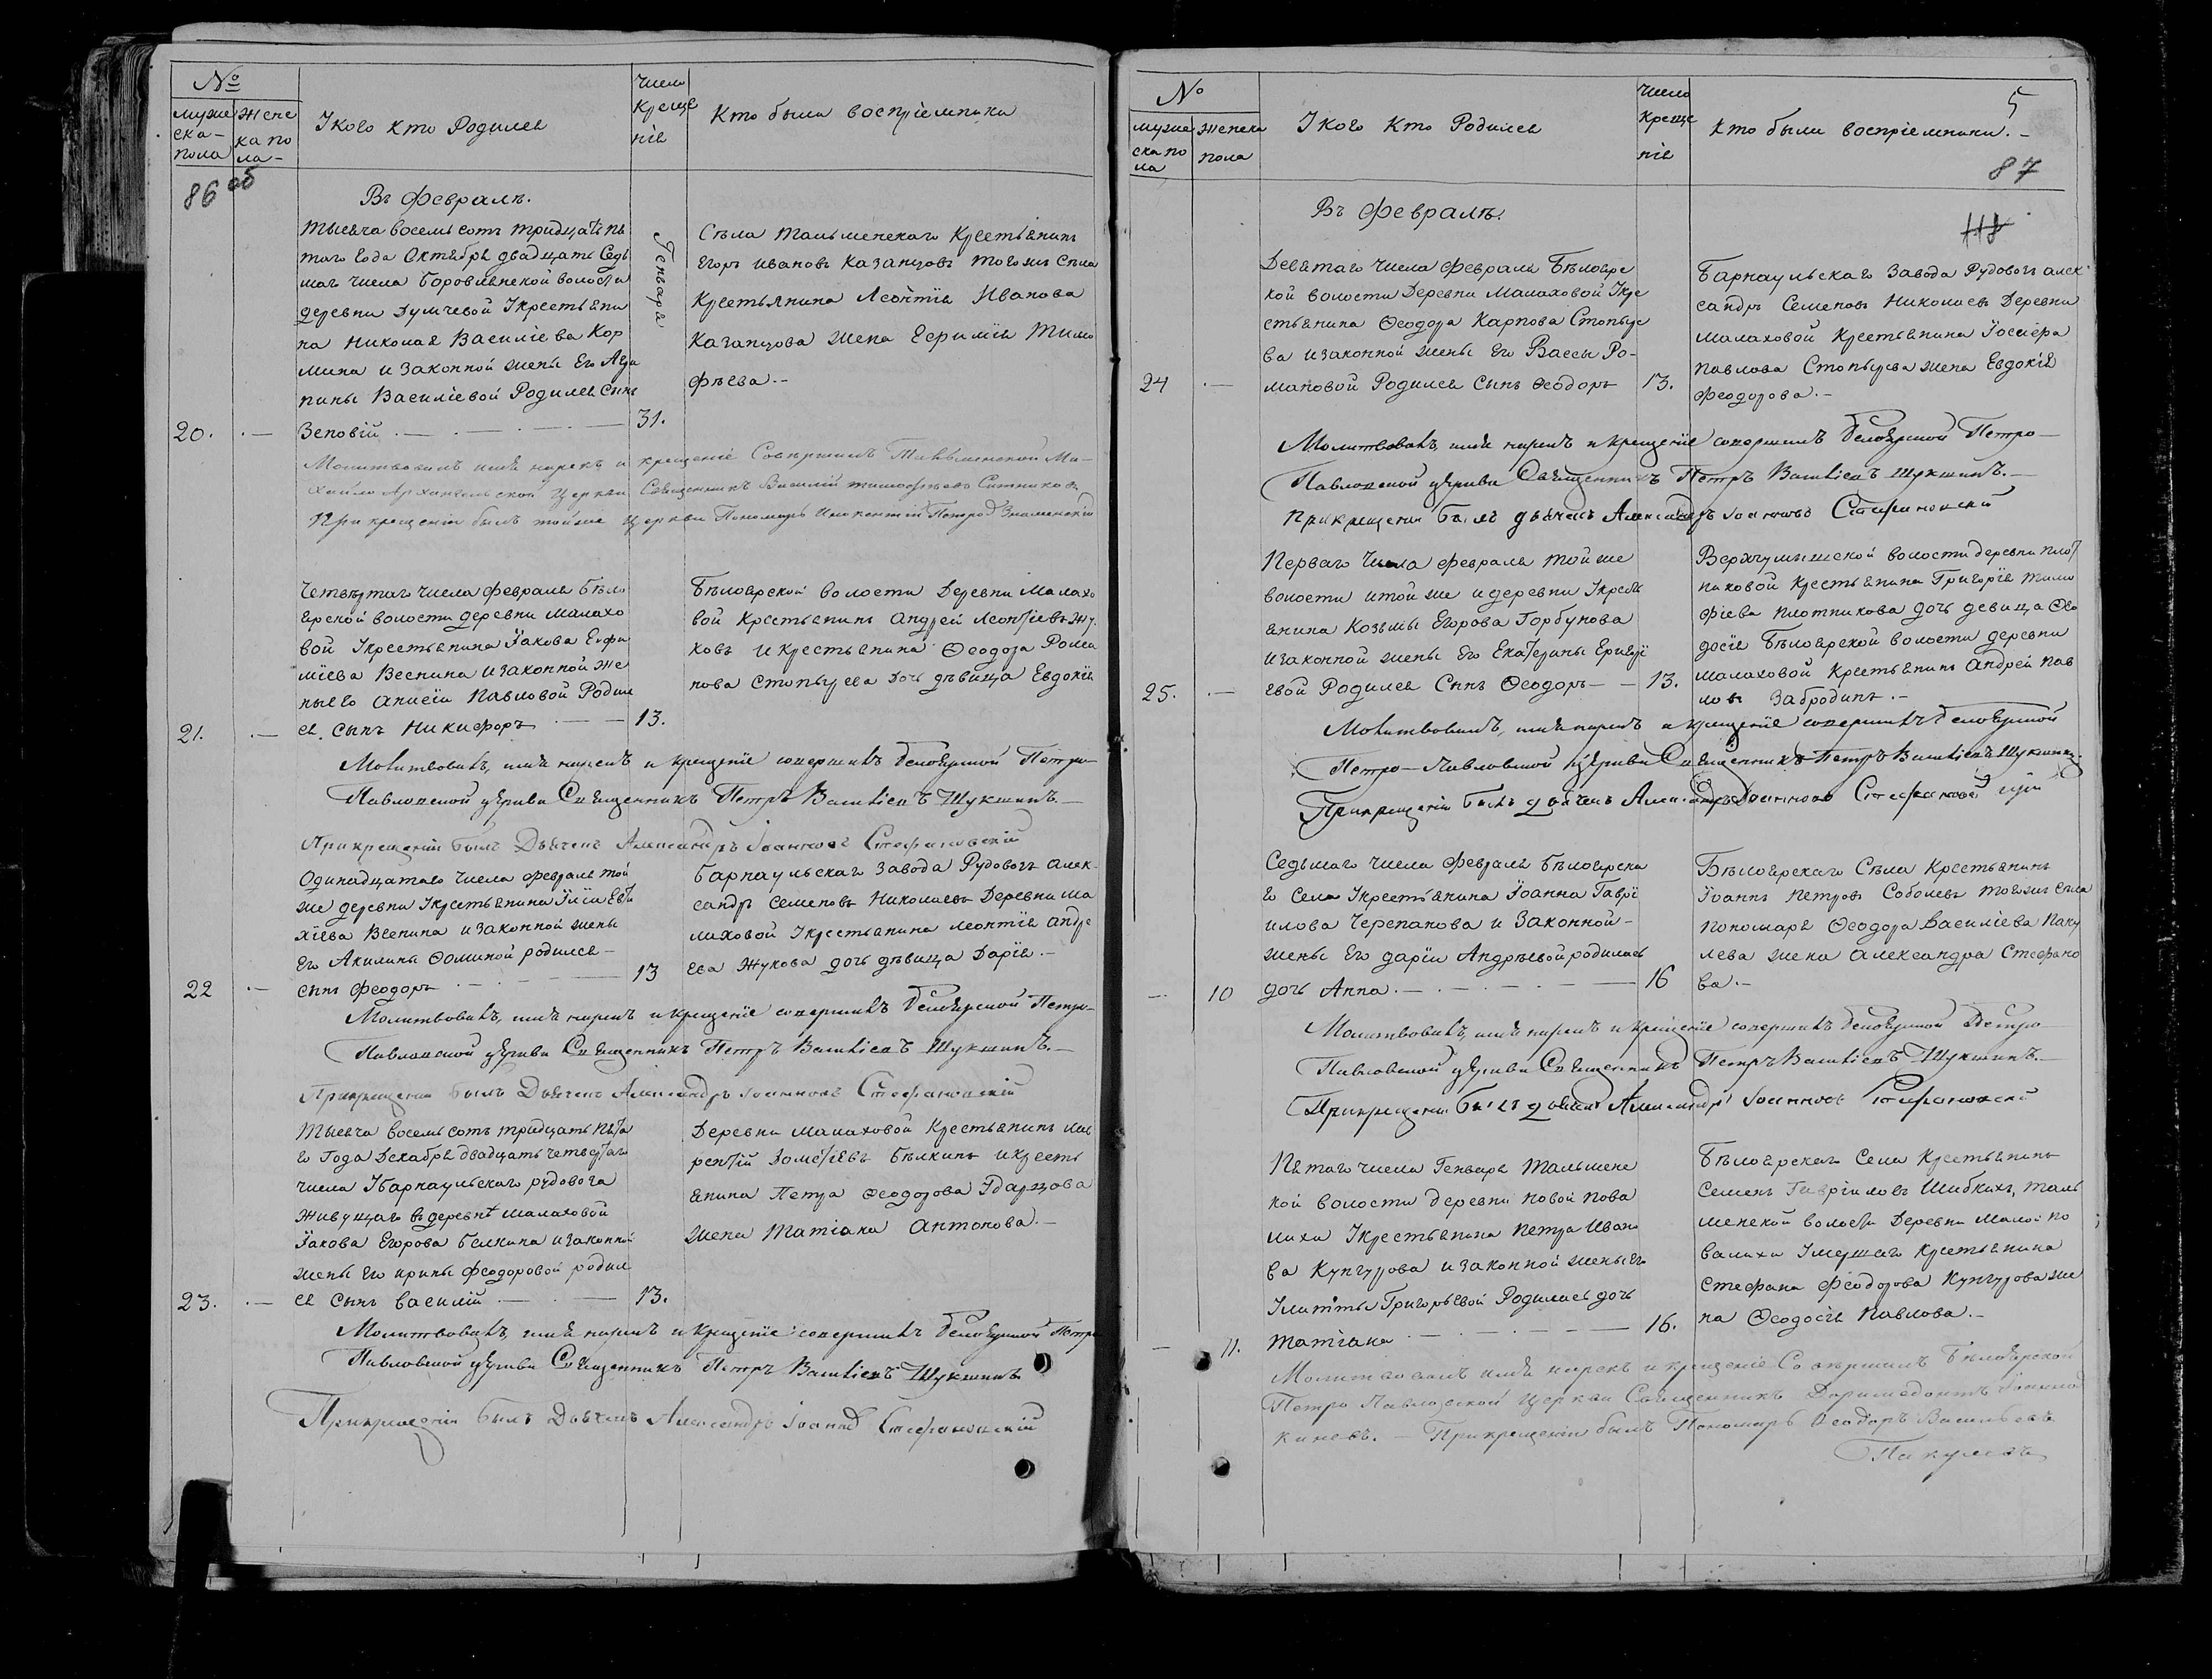 №
мужеска- пола
женска пола-
Укого кто Родился
число крещенія
кто были воспріемники
86 об
Въ Февралѣ.
тысяча восемь сотъ тридцать пя
таго года Октября двадцать Седь
маго числа Боровлянской волости
деревни Думчевой Укрестьяни
на Николая Василіева Кор
мина и законной жены Его Агри
пины Василіевой Родился сынъ
20. .— Зеновій .— 31.
Генваря
Села Тальменскаго Крестьянинъ
Егоръ Ивановъ Казанцовъ тогожъ Села
Крестьянина Леонтія Иванова
Казанцова жена Ефимія Тимо
фѣева.-
Молитвовалъ имя нарекъ и крещеніе Совершилъ Тальменской Ми-
хайло Архангельской Церкви Священникъ Василій Тимофѣевъ Ситников
При крещеніи былъ тойже Церкви Пономарь Инокентій Петров Знаменскій
Четвертаго числа февраля Бѣло
ярской волости деревни Малахо
вой Укрестьянина Іакова Евфи
міева Веснина и законной же
ны его Анисіи Павловой Родил
21. .— ся сынъ Никифоръ — 13.
Бѣлоярской волости Деревни Малахо
вой Крестьянинъ Андрей Леонтіевъ Жу
ковъ и крестьянина Ѳеодора Рома
нова Стопырева Дочь дѣвица Евдокія
Молитвовалъ, имя нарекъ и крещеніе совершилъ Белоярской Петро-
Павловской церкви Священникъ Петръ Васильевъ Шукшинъ.—
При крещеніи былъ Дьячекъ Александръ Іоанновъ Стефановскій
Одинадцатаго числа февраля той
же деревни Укрестьянина Евти
хіева Веснина и законной жены
Его Акилины Ѳоминой родился-
22 .— сынъ Феодоръ .— 13
Барнаульскаго завода Рудовозъ Алек-
сандръ Семеновъ Николаевъ Деревни Ма
лаховой Укрестьянина Леонтія Андре
ева Жукова дочь дѣвица Дарія.-
Молитвовалъ, имя нарекъ и крещеніе совершилъ Белоярской Петро-
Павловской церкви Священникъ Петръ Васильевъ Шукшинъ.—
При крещеніи былъ Дьячекъ Александръ Іоанновъ Стефановскій
Тысяча восемь сотъ тридцать пята
го Года Декабря двадцать четвертаго
числа Убарнаульскаго рудовоза
живущаго в деревнѣ Малаховой
Іакова Егорова Белкина и законной
жены Его Ирины Феодоровой родил
23. .— ся сынъ Василій .— 13.
Деревни Малаховой Крестьянинъ Лав
рентій Дометіевъ Бѣлкинъ и крестья
янина Петра Ѳеодорова Ударцова
жена Татіана Антонова.—
Молитвовалъ, имя нарекъ и крещеніе совершилъ Белоярской Петро
Павловской церкви Священникъ Петръ Васильевъ Шукшинъ
При крещеніи былъ Дьячекъ Александръ Іоаннов Стефановскій
№
мужеска пола
женска пола
Укого Кто Родился
Число Крещенія
Кто были воспріемники.-
5
87
118
Въ Февралѣ.
Девятаго числа февраля Бѣлояр
кой волости Деревни Малаховой Укре
стьянина Ѳеодора Карпова Стопыре
ва и законной жены Его Вассы Ро-
24 .— мановой Родился Сынъ Ѳеодоръ 13.
Барнаульскаго Завода Рудовозъ Алек
сандръ Семеновъ Николаевъ Деревни
Малаховой Крестьянина Іосифа
Павлова Стопырева жена Евдокія
Феодорова.—
Молитвовалъ, имя нарекъ и крещеніе совершилъ Белоярской Петро-
Павловской церкви Священникъ Петръ Васильевъ Шукшинъ.—
При крещении былъ дьячекъ Александръ Іоанновъ Стефановскій
Перваго Числа февраля тойже
волости и той же и деревни Укресть
янина Козьмы Егорова Горбунова
И законной жены Его Екатерины Григорі
25. .— евой Родился Сынъ Ѳеодоръ — 13.
Верхчумышской волости деревни Плот
никовой Крестьянина Григорія Тимо
фіева Плотникова дочь девица Ѳео
досія Бѣлоярской волости деревни
Малаховой Крестьянинъ Андрей Пав
ловъ Забродинъ.-
Молитвовалъ, имя нарекъ и крещеніе совершилъ Белоярской
Петро-Павловской церкви Священникъ Петръ Васильевъ Шукшинъ
При крещеніи былъ дьячекъ Александръ Іоанновъ Стефановскій
Седьмаго числа февраля Бѣлоярска
го Села Укрестьянина Іоанна Гаврі
илова Черепанова и Законной-
жены Его Даріи Андрѣевой родилась
— 10 дочь Анна.— 16
Бѣлоярскаго Села Крестьянинъ
Іоаннъ Петровъ Соболевъ тогожъ села
Пономаря Ѳеодора Василіева Паку
лева жена Александра Стефано
ва.-
Молитвовалъ, имя нарекъ и крещеніе совершилъ Белоярской Петро
Павловской церкви Священникъ Петръ Васильевъ Шукшинъ.—
При крещеніи былъ дьячекъ Александръ Іоанновъ Стефановскій
Пятаго числа Генваря Тальмен
кой волости деревни Новой Пова
лихи Укрестьянина Петра Ивано
ва Кунгурова и законной жены Его
Григорьевой Родилась дочь
— 11. Татіана .— 16.
Бѣлоярскаго Села Крестьянинъ
Семенъ Гавріиловъ Шибкихъ, Таль
менской волости Деревни Малой По
валихи Умершаго Крестьянина
Стефана Феодорова Кунгурова же
на Ѳеодосія Павлова.—
Молитвовалъ имя нарекъ и крещеніе Совершилъ Бѣлоярской
Петро Павловской Церкви Священникъ Доримедонтъ
При крещеніи былъ Пономарь Ѳеодоръ Васильевъ
Пакулевъ